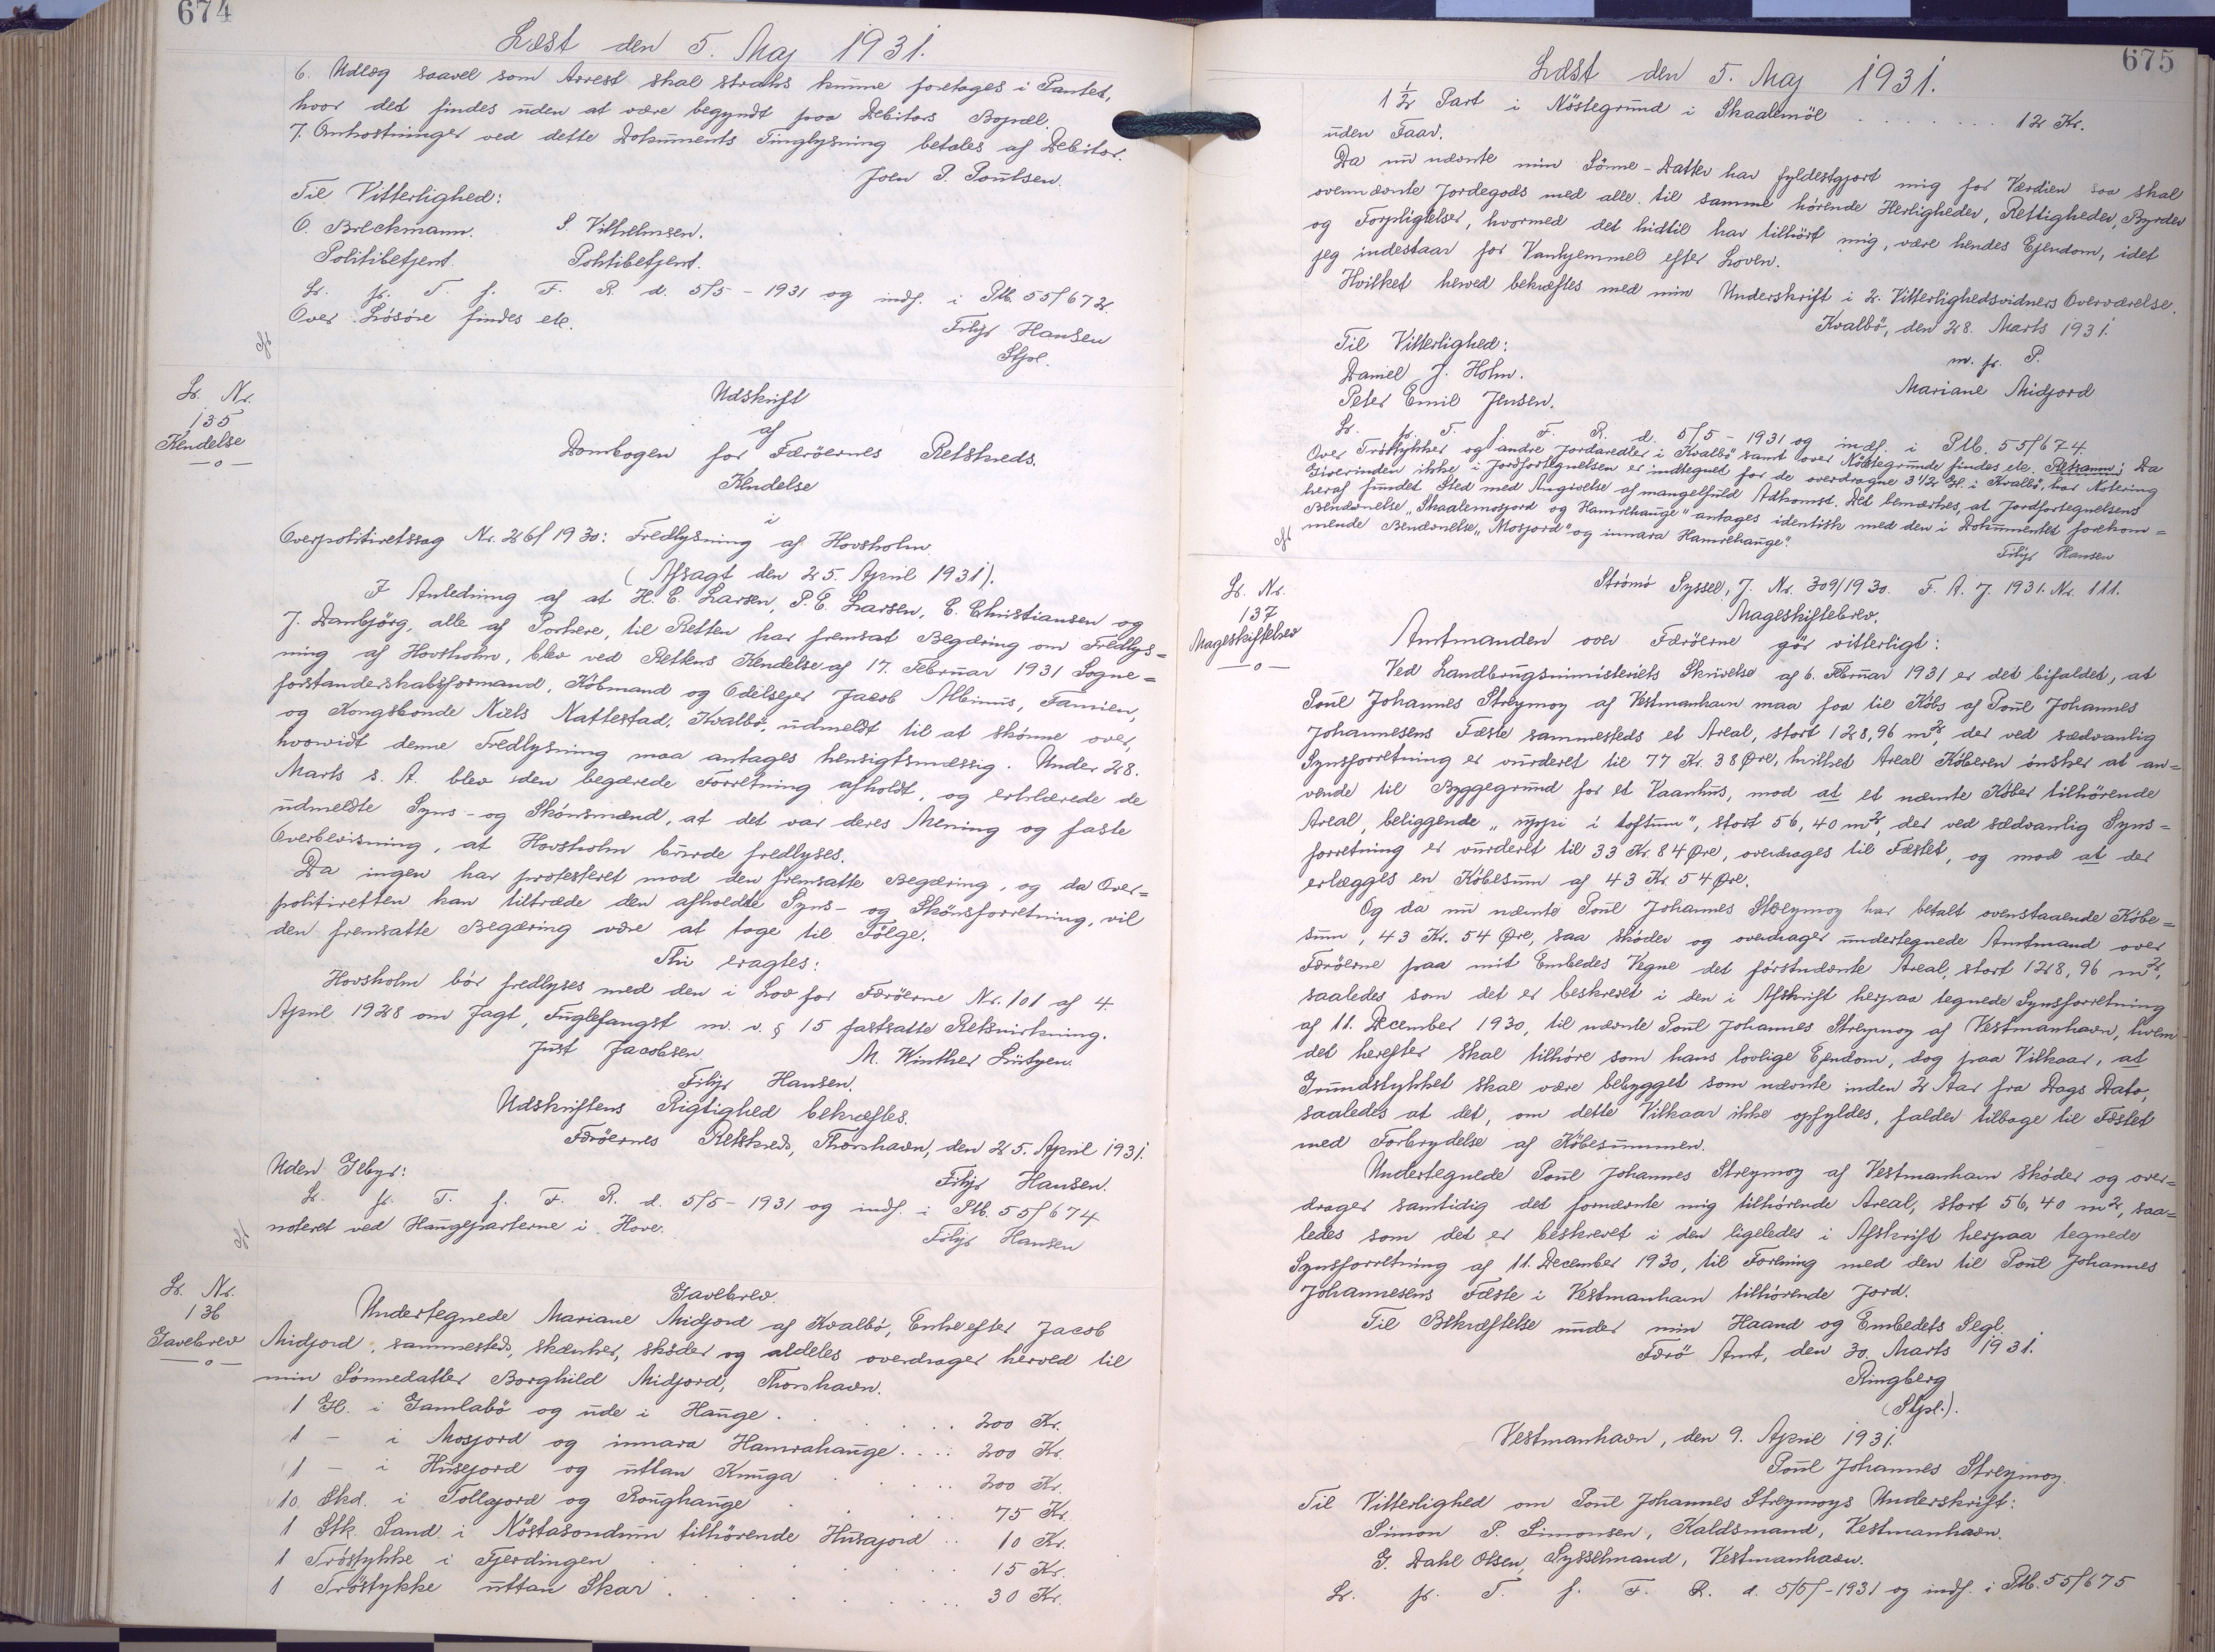 674
Læst den 5. Maj 1931.
6. Udlæg saavel som Arrest skal straks kunne foretages i Pantet,
hvor det findes uden at være begyndt paa Debitors Bopæl.
7. Omkostninger ved dette Dokuments Tinglysning betales af Debitor.
Joen P. Poulsen.
Til Vitterlighed:
O. Breckmann. S. Vilhelmsen.
Politibetjent. Politibetjent.
Lr. fr. T. f. F. R. d. 5/5 - 1931 og indf. i Ptb. 55/672.
Over Løsøre findes ele.
Filip Hansen
Stfbl.
Lr. Nr.
135
Kendelse
—o—
Udskrift
af
Dombogen for Færöernes Retskreds.
Kendelse
i
Overpolitiretssag Nr. 26/1930: Fredlysning af Hovsholm.
(Afsagt den 25. April 1931).
I Anledning af at H. E. Larsen, P. E. Larsen, E. Christiansen og
J. Dambjörg, alle af Porkere, til Retten har fremsat Begæring om Fredlys=
ning af Hovsholm, blev ved Rettens Kendelse af 17. Februar 1931 Sogne=
forstanderskabsformand, Købmand og Odelsejer Jacob Albinus, Famien,
og Kongsbonde Niels Nattestad, Kvalbø, udmeldt til at skønne over,
hvorvidt denne Fredlysning maa antages hensigtsmæssig. Under 28.
Marts s. A. blev den begærede Forretning afholdt, og erklærede de
udmeldte Syns- og Skønsmænd, at det var deres Mening og faste
Overbevisning, at Hovsholm burde fredlyses.
Da ingen har protesteret mod den fremsatte Begæring, og da Over=
politiretten kan tiltræde den afholdte Syns- og Skönsforretning, vil
den fremsatte Begæring være at tage til Fölge.
Thi eragtes:
Hovsholm bör fredlyses med den i Lov for Færöerne Nr. 101 af 4.
April 1928 om Jagt, Fuglefangst m. v. § 15 fastsatte Retsvirkning.
Just Jacobsen. M. Winther Lützen.
Filip Hansen.
Udskriftens Rigtighed bekræftes.
Færöernes Retskreds, Thorshavn, den 25. April 1931.
Uden Gebyr: Filip Hansen.
Lr. fr. T. f. F. R. d. 5/5 - 1931 og indf. i Ptb. 55/674
noteret ved Haugeparterne i Hove. Filip Hansen
Lr. Nr.
136
Gavebrev
—o—
Gavebrev.
Undertegnede Mariane Midjord af Kvalbö, Enke efter Jacob
Midjord, sammesteds, skænker, skøder og aldeles overdrager herved til
min Sønnedatter Borghild Midjord, Thorshavn.
1 Gl. i Gamlabö og ude i Hauge . . . . . 200 Kr.
1 - i Mosjord og innara Hamrahauge. . . . 200 Kr.
1 - i Husejord og uttan Knuga . . . . . 200 Kr.
10 Skd. i Tollajord og Roughauge . . . . 75 Kr.
1 Stk. Sand i Nöstasondum tilhörende Husajord .. 10 Kr.
1 Tröstykke i Fjerdingen . . . . . 15 Kr.
1 Tröstykke uttan Skar . . . . . 30 Kr.
675
Læst den 5. Maj 1931.
1 1/2 Part i Nöstegrund i Skaalemöl . . . . . . 12 Kr.
uden Faar.
Da nu nævnte min Sönne-Datter har fyldestgjort mig for Værdien saa skal
ovennævnte Jordegods med alle til samme hörende Herligheder, Rettigheder, Byrder
og Forpligtelser, hvormed det hidtil har tilhört mig, være hendes Ejendom, idet
jeg indestaar for Vanhjemmel efter Loven.
Hvilket herved bekræftes med min Underskrift i 2. Vitterlighedsvidners Overværelse.
Kvalbö, den 28. Marts 1931.
Til Vitterlighed: m. f. P.
Daniel J. Holm. Mariane Midjord
Peter Emil Jensen.
Lr. fr. T. f. F. R. d. 5/5 - 1931 og indf. i Ptb. 55/674.
Over Tröstykker og andre Jordarealer i Kvalbö samt over Nöstegrunde findes ele. Retsanm: Da
Giverinden ikke i Jordfortegnelsen er indtegnet for de overdragne 3 1/2 Gl. i Kvalbö, har Notering
heraf fundet Sted med Angivelse af mangelfuld Adkomst. Det bemærkes, at Jordfortegnelsens
Benævnelse "Skaalemosjord og Hamrehauge" antages identisk med den i Dokumentet forekom=
mende Benævnelse "Mosjord" og innara Hamrehauge".
Filip Hansen
Lr. Nr.
137
Mageskiftebrev
—o—
Strömö Syssel, J. Nr. 309/1930. F. A. J. 1931. Nr. 111.
Mageskiftebrev.
Amtmanden over Færöerne gör vitterligt:
Ved Landbrugsministeriets Skrivelse af 6. Februar 1931 er det bifaldet, at
Poul Johannes Streymoy af Vestmanhavn maa faa til Købs af Poul Johannes
Johannesens Fæste sammesteds et Areal, stort 128,96 m², der ved sædvanlig
Synsforretning er vurderet til 77 Kr. 38 Øre, hvilket Areal Køberen ønsker at an=
vende til Byggegrund for et Vaanhus, mod at et nævnte Køber tilhörende
Areal, beliggende "uppi í toftum", stort 56,40 m², der ved sædvanlig Syns=
forretning er vurderet til 33 Kr. 84 Øre, overdrages til Fæstet, og mod at der
erlægges en Købesum af 43 Kr. 54 Øre.
Og da nu nævnte Poul Johannes Streymoy har betalt ovenstaaende Købe=
sum, 43 Kr. 54 Øre, saa skøder og overdrager undertegnede Amtmand over
Færöerne paa mit Embedes Vegne det førstnævnte Areal, stort 128,96 m²,
saaledes som det er beskrevet i den i Afskrift herpaa tegnede Synsforretning
af 11. December 1930, til nævnte Poul Johannes Streymoy af Vestmanhavn, hvem
det herefter skal tilhøre som hans lovlige Ejendom, dog paa Vilkaar, at
Grundstykket skal være bebygget som nævnte inden 2 Aar fra Dags Dato,
saaledes at det, om dette Vilkaar ikke opfyldes, falder tilbage til Fæstet
med Forbrydelse af Købesummen.
Undertegnede Poul Johannes Streymoy af Vestmanhavn skøder og over=
drager samtidig det fornævnte mig tilhørende Areal, stort 56,40 m², saa=
ledes som det er beskrevet i den ligeledes i Afskrift herpaa tegnede
Synsforretning af 11. December 1930, til Forening med den til Poul Johannes
Johannesens Fæste i Vestmanhavn tilhørende Jord.
Til Bekræftelse under min Haand og Embedets Segl.
Færö Amt, den 30. Marts 1931.
Ringberg
(Stpl.).
Vestmanhavn, den 9. April 1931.
Poul Johannes Streymoy.
Til Vitterlighed om Poul Johannes Streymoys Underskrift:
Simon P. Simonsen, Kaldsmand, Vestmanhavn.
G. Dahl Olsen, Sysselmand, Vestmanhavn.
Lr. fr. T. f. F. R. d. 5/5 -1931 og indf. i Ptb. 55/675